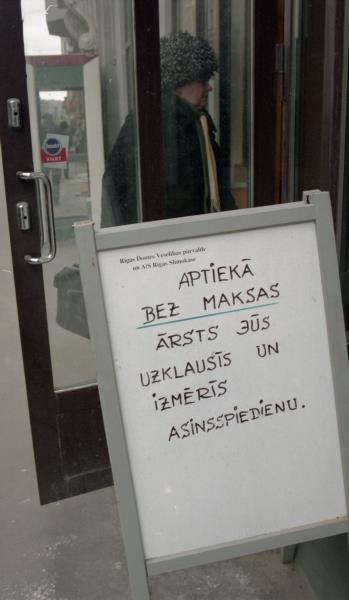 Rīgas Domes Veselības pārvalde
un A/S Rīgas Slimokase
APTIEKĀ
BEZ MAKSAS
ĀRSTS JŪS
UZKLAUSĪS UN
IZMĒRĪS
ASINSSPIEDIENU.